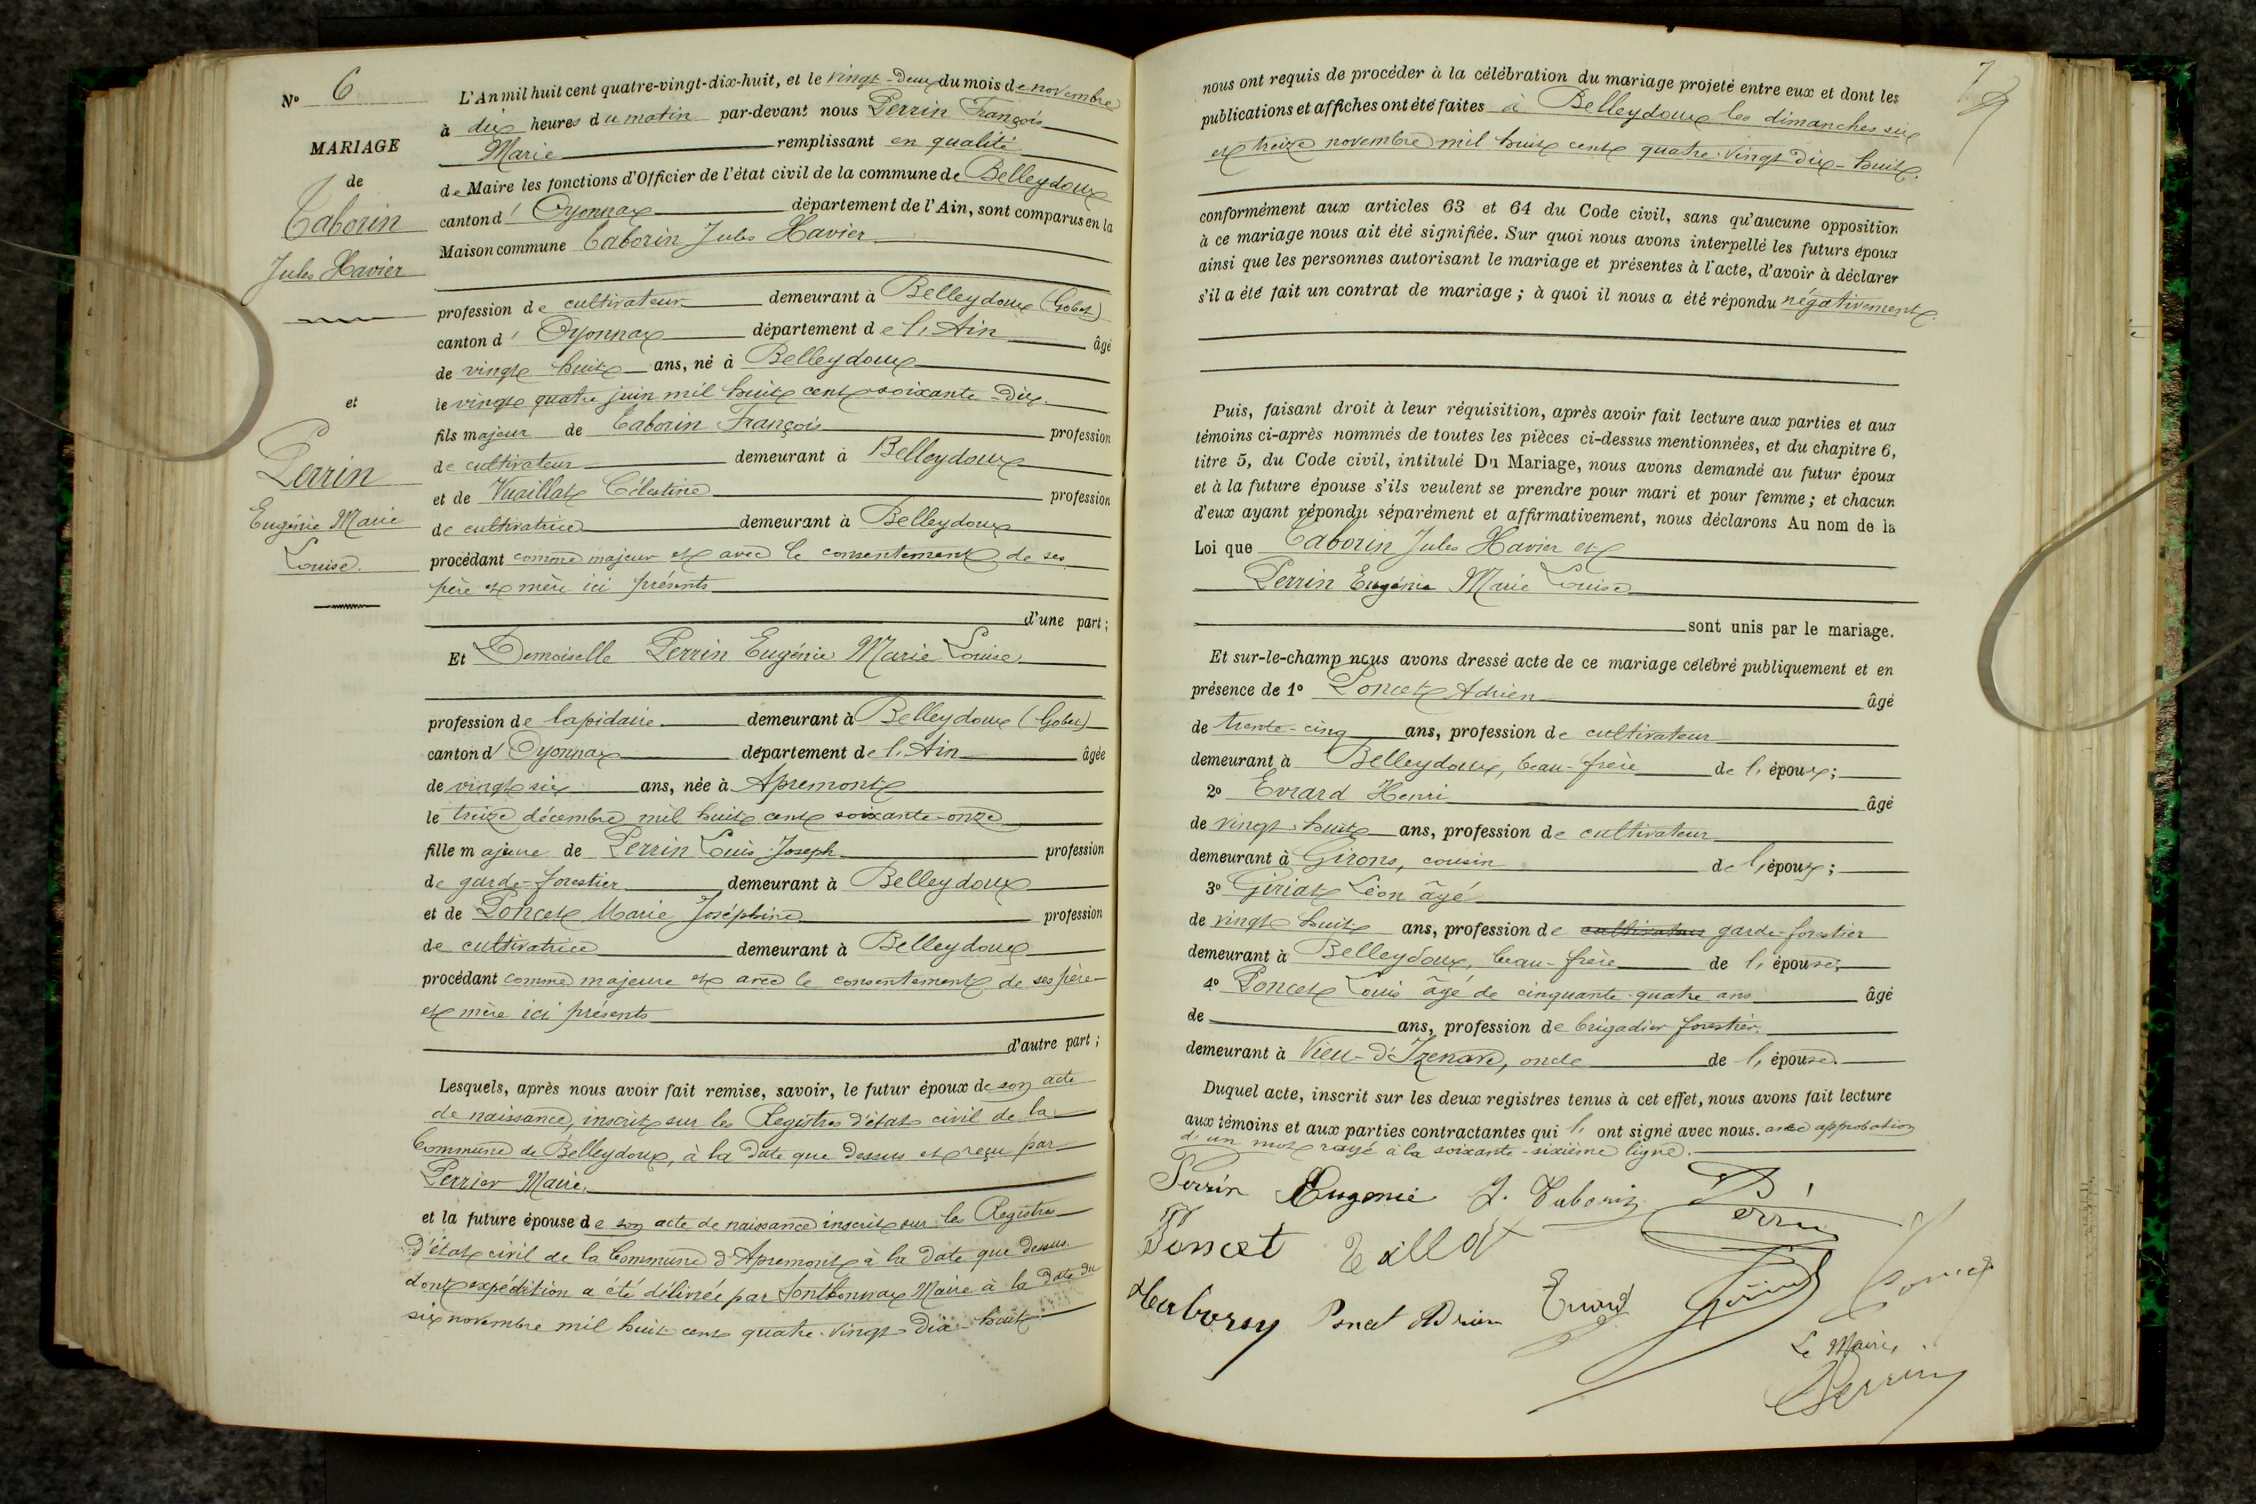 N° 6
MARIAGE
de
Taborin
Jules Xavier
et
Perrin
Eugénie Marie
Louise.
L'An mil huit cent quatre-vingt-dix-huit, et le vingt-deux du mois de novembre
à dix heures du matin par-devant nous Perrin François
Marie remplissant en qualité
de Maire les fonctions d'Officier de l'état civil de la commune de Belleydoux
canton d' Oyonnax département de l'Ain, sont comparus en la
Maison commune Taborin Jules Xavier
profession de cultivateur demeurant à Belleydoux (Gobet)
canton d' Oyonnax département de l'Ain âgé
de vingt huit ans, né à Belleydoux
le vingt quatre juin mil huit cent soixante-dix.
fils majeur de Taborin François profession
de cultivateur demeurant à Belleydoux
et de Vuaillat Célestine profession
de cultivatrice demeurant à Belleydoux
procédant comme majeur et avec le consentement de ses
père et mère ici présents
d'une part;
Et Demoiselle Perrin Eugénie Marie Louise.
profession de lapidaire demeurant à Belleydoux (Gobet)
canton d' Oyonnax département de l'Ain âgée
de vingt six ans, née à Apremont
le treize décembre mil huit cent soixante-onze
fille majeure de Perrin Louis Joseph profession
de garde-forestier demeurant à Belleydoux
et de Poncet Marie Joséphine profession
de cultivatrice demeurant à Belleydoux
procédant comme majeure et avec le consentement de ses père
et mère ici présents
d'autre part;
Lesquels, après nous avoir fait remise, savoir, le futur époux de son acte
de naissance, inscrit sur les Registres d'état civil de la
Commune de Belleydoux, à la date que dessus et reçu par
Perrier Maire.
et la future épouse de son acte de naissance inscrit sur les Registres
d'état civil de la Commune d'Apremont à la date que dessus
dont expédition a été délivrée par Sonthonnax Maire à la date du
six novembre mil huit cent quatre-vingt-dix-huit
7
nous ont requis de procéder à la célébration du mariage projeté entre eux et dont les
publications et affiches ont été faites à Belleydoux les dimanches six
et treize novembre mil huit cent quatre-vingt dix-huit.
conformément aux articles 63 et 64 du Code civil, sans qu'aucune opposition
à ce mariage nous ait été signifiée. Sur quoi nous avons interpellé les futurs époux
ainsi que les personnes autorisant le mariage et présentes à l'acte, d'avoir à déclarer
s'il a été fait un contrat de mariage; à quoi il nous a été répondu négativement.
Puis, faisant droit à leur réquisition, après avoir fait lecture aux parties et aux
témoins ci-après nommés de toutes les pièces ci-dessus mentionnées, et du chapitre 6,
titre 5, du Code civil, intitulé Du Mariage, nous avons demandé au futur époux
et à la future épouse s'ils veulent se prendre pour mari et pour femme; et chacun
d'eux ayant répondu séparément et affirmativement, nous déclarons Au nom de la
Loi que Taborin Jules Xavier et
Perrin Eugénie Marie Louise
sont unis par le mariage.
Et sur-le-champ nous avons dressé acte de ce mariage célébré publiquement et en
présence de 1° Poncet Adrien âgé
de trente-cinq ans, profession de cultivateur
demeurant à Belleydoux, beau-frère de l'époux;
2° Evrard Henri âgé
de vingt-huit ans, profession de cultivateur
demeurant à Girons, cousin de l'époux;
3° Gériat Léon âgé
de vingt huit ans, profession de cultivateur garde-forestier
demeurant à Belleydoux, beau-frère de l'épouse;
4° Poncet Louis âgé de cinquante-quatre ans âgé
de ans, profession de brigadier forestier.
demeurant à Vieu-d'Izenave, oncle de l'épouse.
Duquel acte, inscrit sur les deux registres tenus à cet effet, nous avons fait lecture
aux témoins et aux parties contractantes qui l' ont signé avec nous. avec approbation
d'un mot rayé à la soixante-sixième ligne.
Perrin Eugenie J. Taborin Perrin
Poncet
Poncet Adrien Evrard Poncet
Le Maire,
Perrin